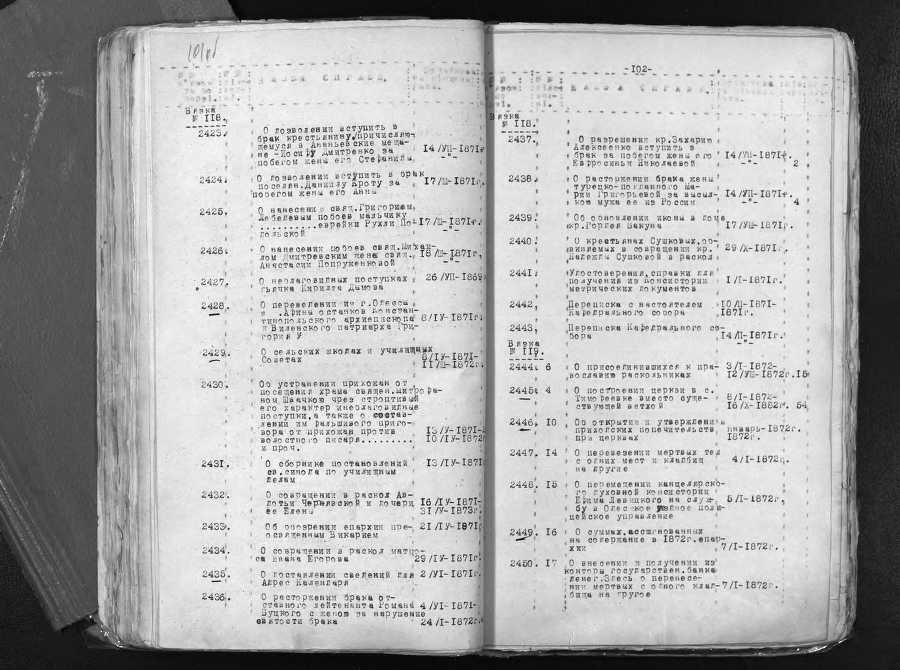 НАЗВА СПРАВИ.
Вязка
№ 118.
2423. О дозволении вступить в
брак крестьянину, причисляю-
щемуся в Ананьевские меща-
не - Иосифу Дмитренко за
побегом жены его Стефаниды 14/УП-1871г.
-"-
2424. О дозволении вступить в брак
поселян. Даниилу Броту за
побегом жены его Анны 17/Ш-1871г.
2425. О нанесении свящ. Григорием
Лебелевым побоев мальчику
..........еврейки Рухли По-
дольской 17/Ш-1871г.
-"-
2426. О нанесении побоев свящ. Михаи-
лом Дмитревским жене свящ.
Анастасии Попруженковой 18/Ш-1871г.
-"-
2427. О неблаговидных поступках
дьячка Кирилла Дымова 26/УП-1869
2428. О переведении из г. Одессы
в Афины останков Констан-
тинопольского архиепископа
и Виленского патриарха Гри-
гория У 8/IУ-1871г.
2429. О сельских школах и училищных
Советах 8/IУ-1871-
11/Ш-1872г.
2430. Об устранении прихожан от
посещения храма священ. Митрофа-
ном Швачкою чрез строптивый
его характер и неблаговидные
поступки, а также о состав-
лении им фальшивого приго-
вора от прихожан против
волостного писаря.........
и проч. 13/IУ-1871-
10/IУ-1872
2431. О сборнике постановлений
св. синода по училищным
делам 13/IУ-1871
2432. О совращении в раскол Ав-
дотьи Чернявской и дочери
ее Елены 16/IУ-1871-
31/У-1873г.
2433. Об обозрении епархии пре-
освященным Викарием 21/IУ-1871г
2434. О совращении в раскол матро-
са Ивана Егорова 29/IУ-1871г.
2435. О доставлении сведений для
Адрес Календаря 2/УI-1871г.
2436. О расторжении брака от-
ставного лейтенанта Романа
Буцкого с женою за нарушение
святости брака 4/УI-1871-
24/I-1872г.
-102-
НАЗВА СПРАВИ.
Вязка
№ 118.
2437. О разрешении кр. Захарию
Алексеенко вступить в
брак за побегом жены его
Евфросиньи Николаевой 14/УП-1871г.
-"- 2
2438. О расторжении брака жены
турецко-подданного Ма-
рии Григорьевой за высыл-
кою мужа ее из России 14/УП-1871г.
-"- 4
2439. Об обновлении иконы в доме
кр. Гордея Бакума 17/УШ-1871г.
2440. О крестьянах Сушковых, об-
виняемых в совращении кр.
Надежды Сушковой в раскол 29/Х-1871г.
2441. Удостоверения, справки для
получения из консистории
метрических документов 1/I-1871г.
2442. Переписка с настоятелем
Кафедрального собора 10/П-1871-
1871г.
2443. Переписка Кафедрального со-
бора 14/П-1871г.
-"-
Вязка
№ 119.
2444. 6 О присоединившихся к пра-
вославию раскольниках 3/I-1872-
12/УШ-1872г. 15
2445. 4 О построении церкви в с.
Тимофеевке вместо суще-
ствующей ветхой 8/I-1872-
16/Х-1882г. 54
2446. 10 Об открытии и утверждении
приходских попечительств
при церквах январь-1872г.
1872г.
2447. 14 О перевезении мертвых тел
с одних мест и кладбищ
на другие 4/I-1872г.
2448. 15 О перемещении канцелярско-
го духовной консистории
Ефима Левицкого на служ-
бу в Одесское уездное поли-
цейское управление 5/I-1872г.
2449. 16 О суммах, ассигнованных
на содержание в 1872г. епар-
хии 7/I-1872г.
2450. 17 О внесении и получении из
конторы государствен. банка
денег. Здесь о перенесе-
нии мертвых с одного клад-
бища на другое 7/I-1872г.